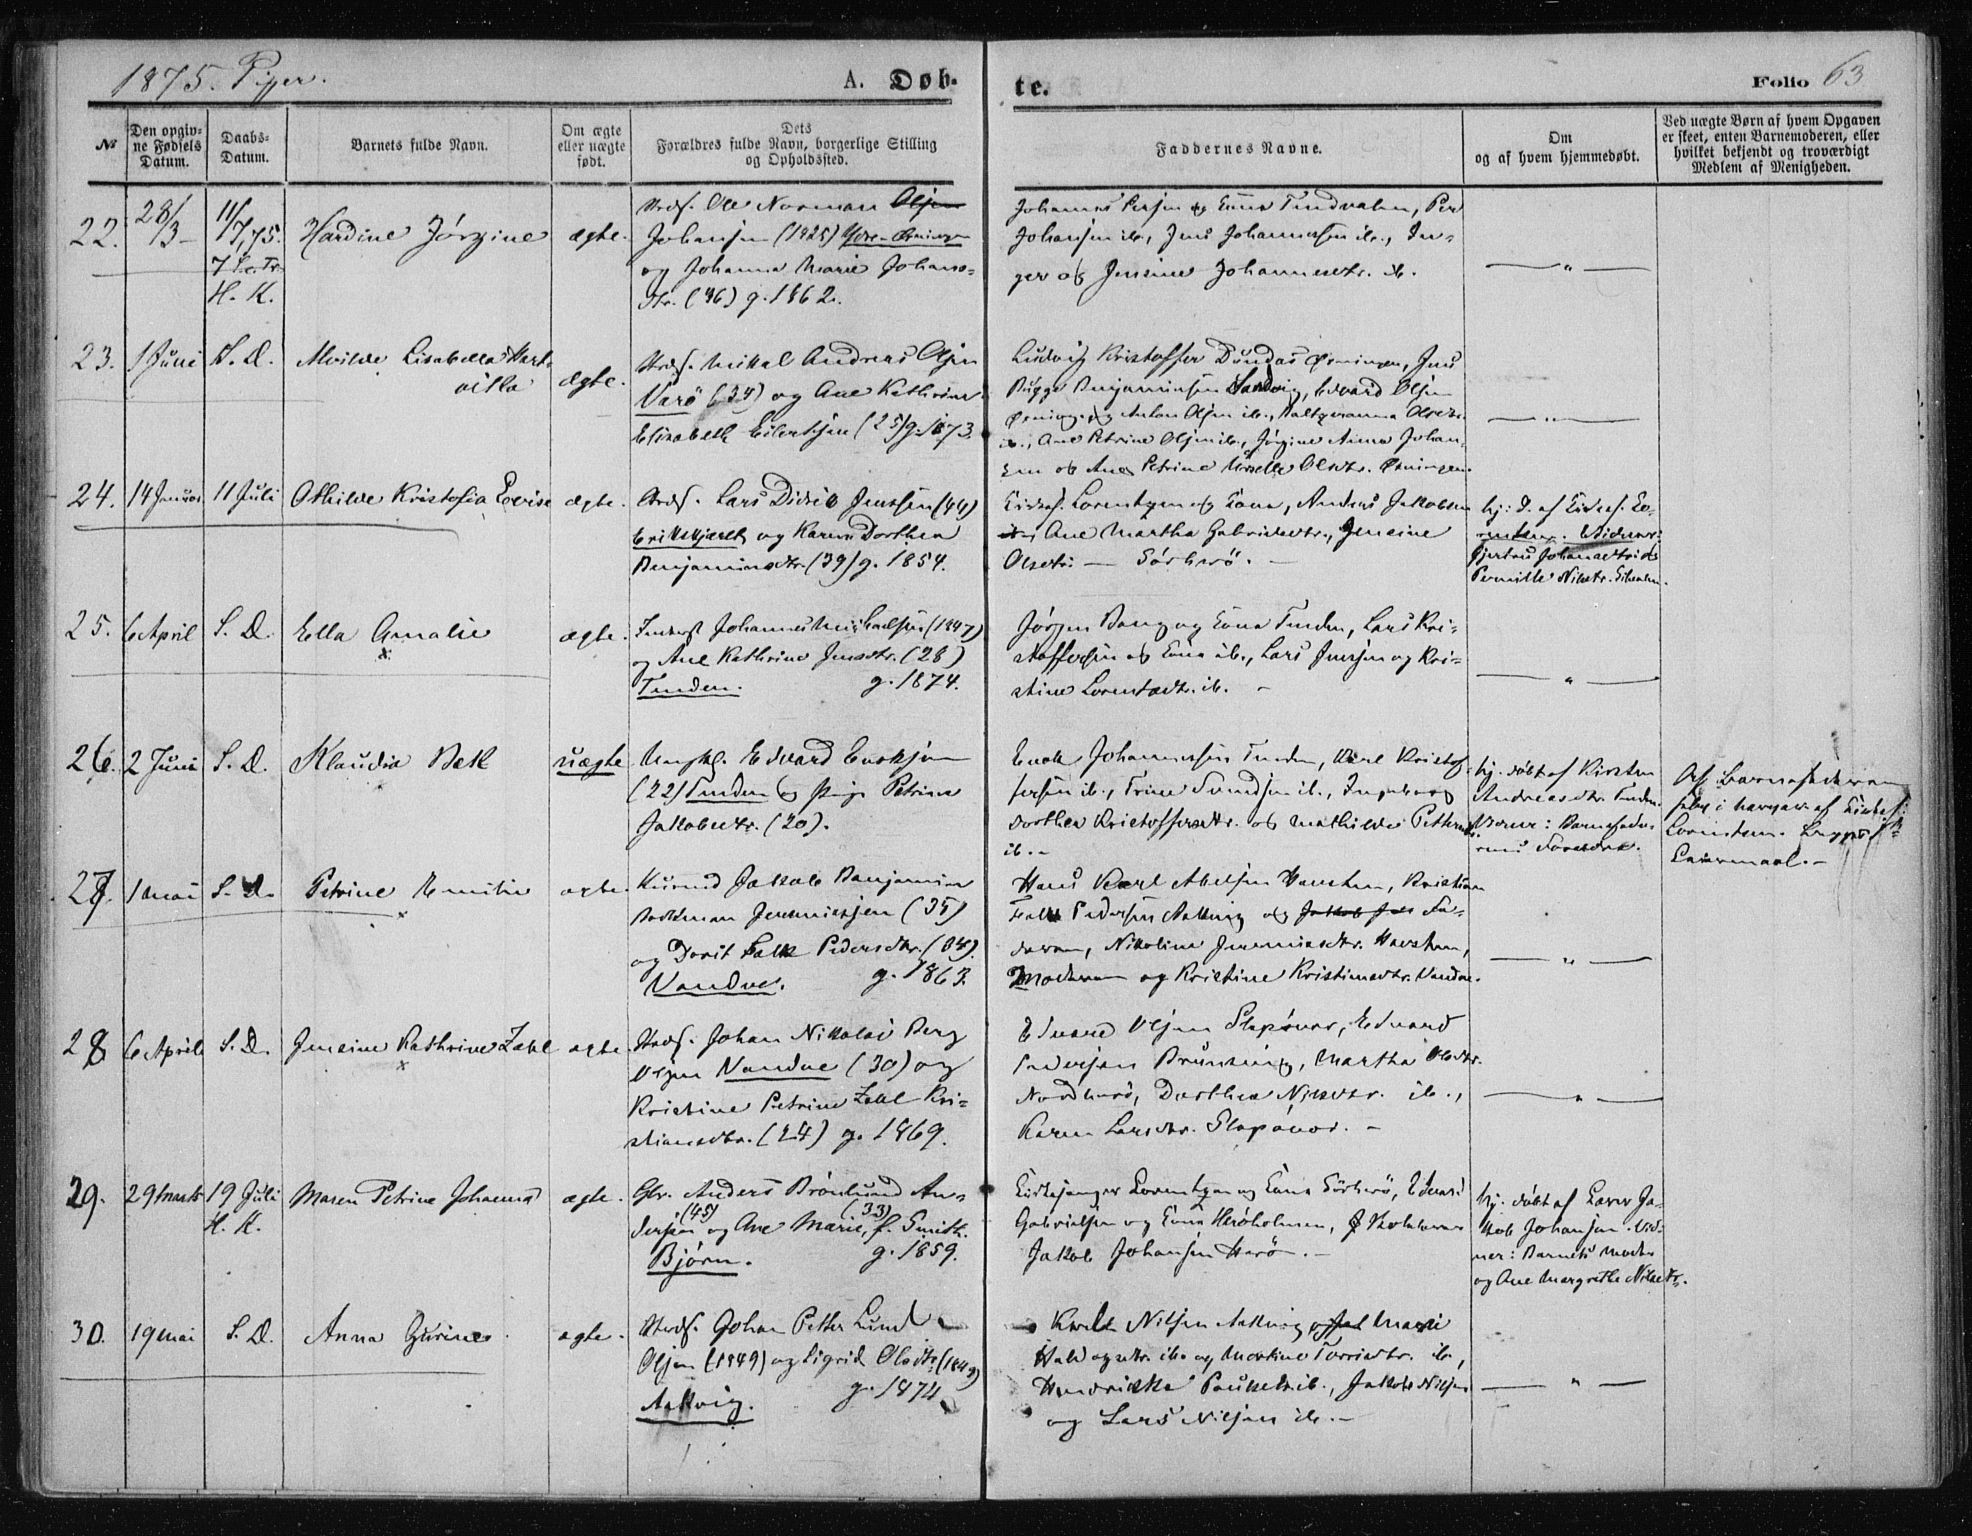 1875. Piger.
A. Døb-
te.
Folio 63
№
Den opgiv-
ne Fødsels
Datum.
Daabs-
Datum.
Barnets fulde Navn.
Om ægte
eller uægte
født.
Dets
Forældres fulde Navn, borgerlige Stilling
og Opholdssted.
Faddernes Navne.
Om
og af hvem hjemmedøbt.
Ved uægte Børn af hvem Opgaven
er skeet, enten Barnemoderen, eller
hvilket bekjendt og troværdigt
Medlem af Menigheden.
22.
28/3
11/7 75.
7 S. e. Tr.
H. K.
Hardine Jörgine
ægte.
Strds. Ole Norman Olsen
Johansen (1825) Ydre-Øksningen
og Johanna Marie Johans-
dtr. (36) g. 1862.
Johannes Persen og Kona Tindvalen, Per
Johansen ib., Jens Johannesen ib., In-
ger og Jensine Johannesdtr. ib.
23.
1 Juni
S. D.
Alvilde Lisabella Hart-
villa
ægte.
Strds. Mikal Andreas Olsen
Varö (34) og Ane Kathrine
Elisabeth Eilertsen (25) g. 1873.
Ludvig Kristoffer Dundas Øksningen, Jens
Bugge Benjaminsen Sandvig, Edvard Olsen
Øksning. og Anton Olsen ib.,
ib., Ane Petrine Olsen ib., Jörgine Anna Johan-
sen og Ane Petrine Olsdtr. Øksningen.
24.
14 Januar
11 Juli
Othilde Kristofia Lovise
ægte.
Strds. Lars Didrik Jenssen (44)
og Karen Dorthea
Benjaminsdtr. (39) g. 1854.
Kirkes. Lorentzen og Kona, Anders Jakobsen
Ane Martha Gabrielsdtr., Jensine
Olsdtr. — Sörherö. —
hj: d. af Kirkes. Lo-
rentzen. Vidner:
Johansdtr. og
Pernille Nilsdtr.
25.
6 April
S. D.
Ella Amalie
x
ægte.
Inderst Johannes Michaelsen (1847)
og Ane Kathrine Jensdtr. (28)
Tenden. g. 1874.
Jörgen Bang og Kona Tenden, Lars Kri-
stoffersen og Kona ib., Lars Jensen og Kri-
stine Lorentsdtr. ib. —
26.
2 Juni
S. D.
Klaudia Bek
uægte
Ungkl. Edvard Enoksen
(22) Tenden og Pige Petrine
Jakobsdtr. (20).
Enok Johannesen Tenden, Karl Kristof-
fersen ib., Trine ib., Ingeborg
Dorthea Kristoffersdtr. og Mathilde Pettersdtr.
ib. —
hj. döbt af Kirsten
Andreasdtr. Tenden.
Vidner: Barnefade-
rens Forældre.
Af Barnefaderen
selv i Nærvær af Kirkes.
Lorentzen. Begges 1ste
Leiermaal. —
27.
1 Mai
S. D.
Petrine Emilie
x
ægte.
Husmd. Jakob Benjamin
Bockman Jeremiasen (35)
og Dorit Falk Pedersdtr. (34).
Vandve. g. 1863.
Hans Karl Abelsen Havstein, Kristian
Falk Pedersen Aakvig og Jakob Fa-
deren, Nikoline Jeremiasdtr. Havstein,
Moderen og Kristine Kristiansdtr. Vandve.
28
6 April
S. D.
Jensine Kathrine Zahl
x
ægte
Strds. Johan Nikolai Berg
Olsen Vandve (30) og
Kristine Petrine Zahl Kri-
stiansdtr. (24) g. 1869.
Edvard Olsen Slapöver, Edvard
Pedersen Martha Olsdtr.
Nordherö, Dorthea Nilsdtr. ib.,
Karen Larsdtr. Slapöver. —
29.
29 Marts
19 Juli
H. K.
Maren Petrine Johanna
ægte.
Gbr. Anders Brönlund An-
dersen (45) og Ane Marie, f. Smith. (33)
Bjørn. g. 1859.
Kirkesanger Lorentzen og Kona Sörherö, Edvard
Gabrielsen og Kona Heröholmen, Skolelærer
Jakob Johansen Herö. —
hj. döbt af Lærer Ja-
kob Johansen. Vid-
ner: Barnets Moder
og Ane Margrethe Nilsdtr.
30.
19 Mai
S. D.
Anna Gurine
ægte.
Strds. Johan Petter Lund
Olsen (1849) og Sigrid Olsdtr. (1849)
Aakvig. g. 1874.
Nilsen Aakvig og Marie
ib. og Martine ib.,
ib., Jakob Nilsen
og Lars Nilsen ib. —